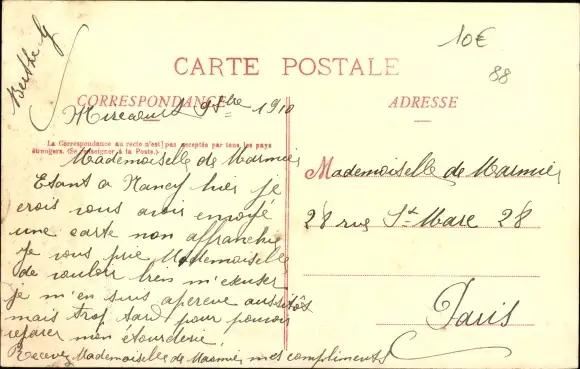 10€
88
Berthe G
CARTE POSTALE
CORRESPONDANCE
ADRESSE
Mirecourt 9bre 1910
La Correspondance au recto n'est pas acceptée par tous les pays
étrangers. (Se renseigner à la Poste.)
Mademoiselle de Marmier
Etant a Nancy hier je
crois vous avoir envoyé
une carte non affranchie
Je vous prie Mademoiselle
de vouloir bien m'excuser
je m'en suis aperçue aussitôt
mais trop tard pour pouvoir
réparer mon étourderie.
Recevez Mademoiselle de Marmier mes compliments
Mademoiselle de Marmier
28 rue St Marc 28
Paris